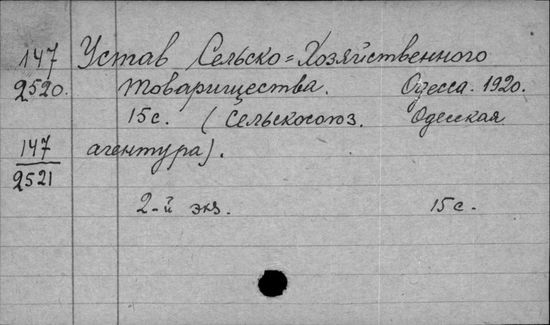 147 Устав Сельско=Хозяйственного
2520. товарищества. Одесса. 1920.
15с. (Сельскосоюз. Одесская
147 агентура).
2521
2-й экз. 15с.